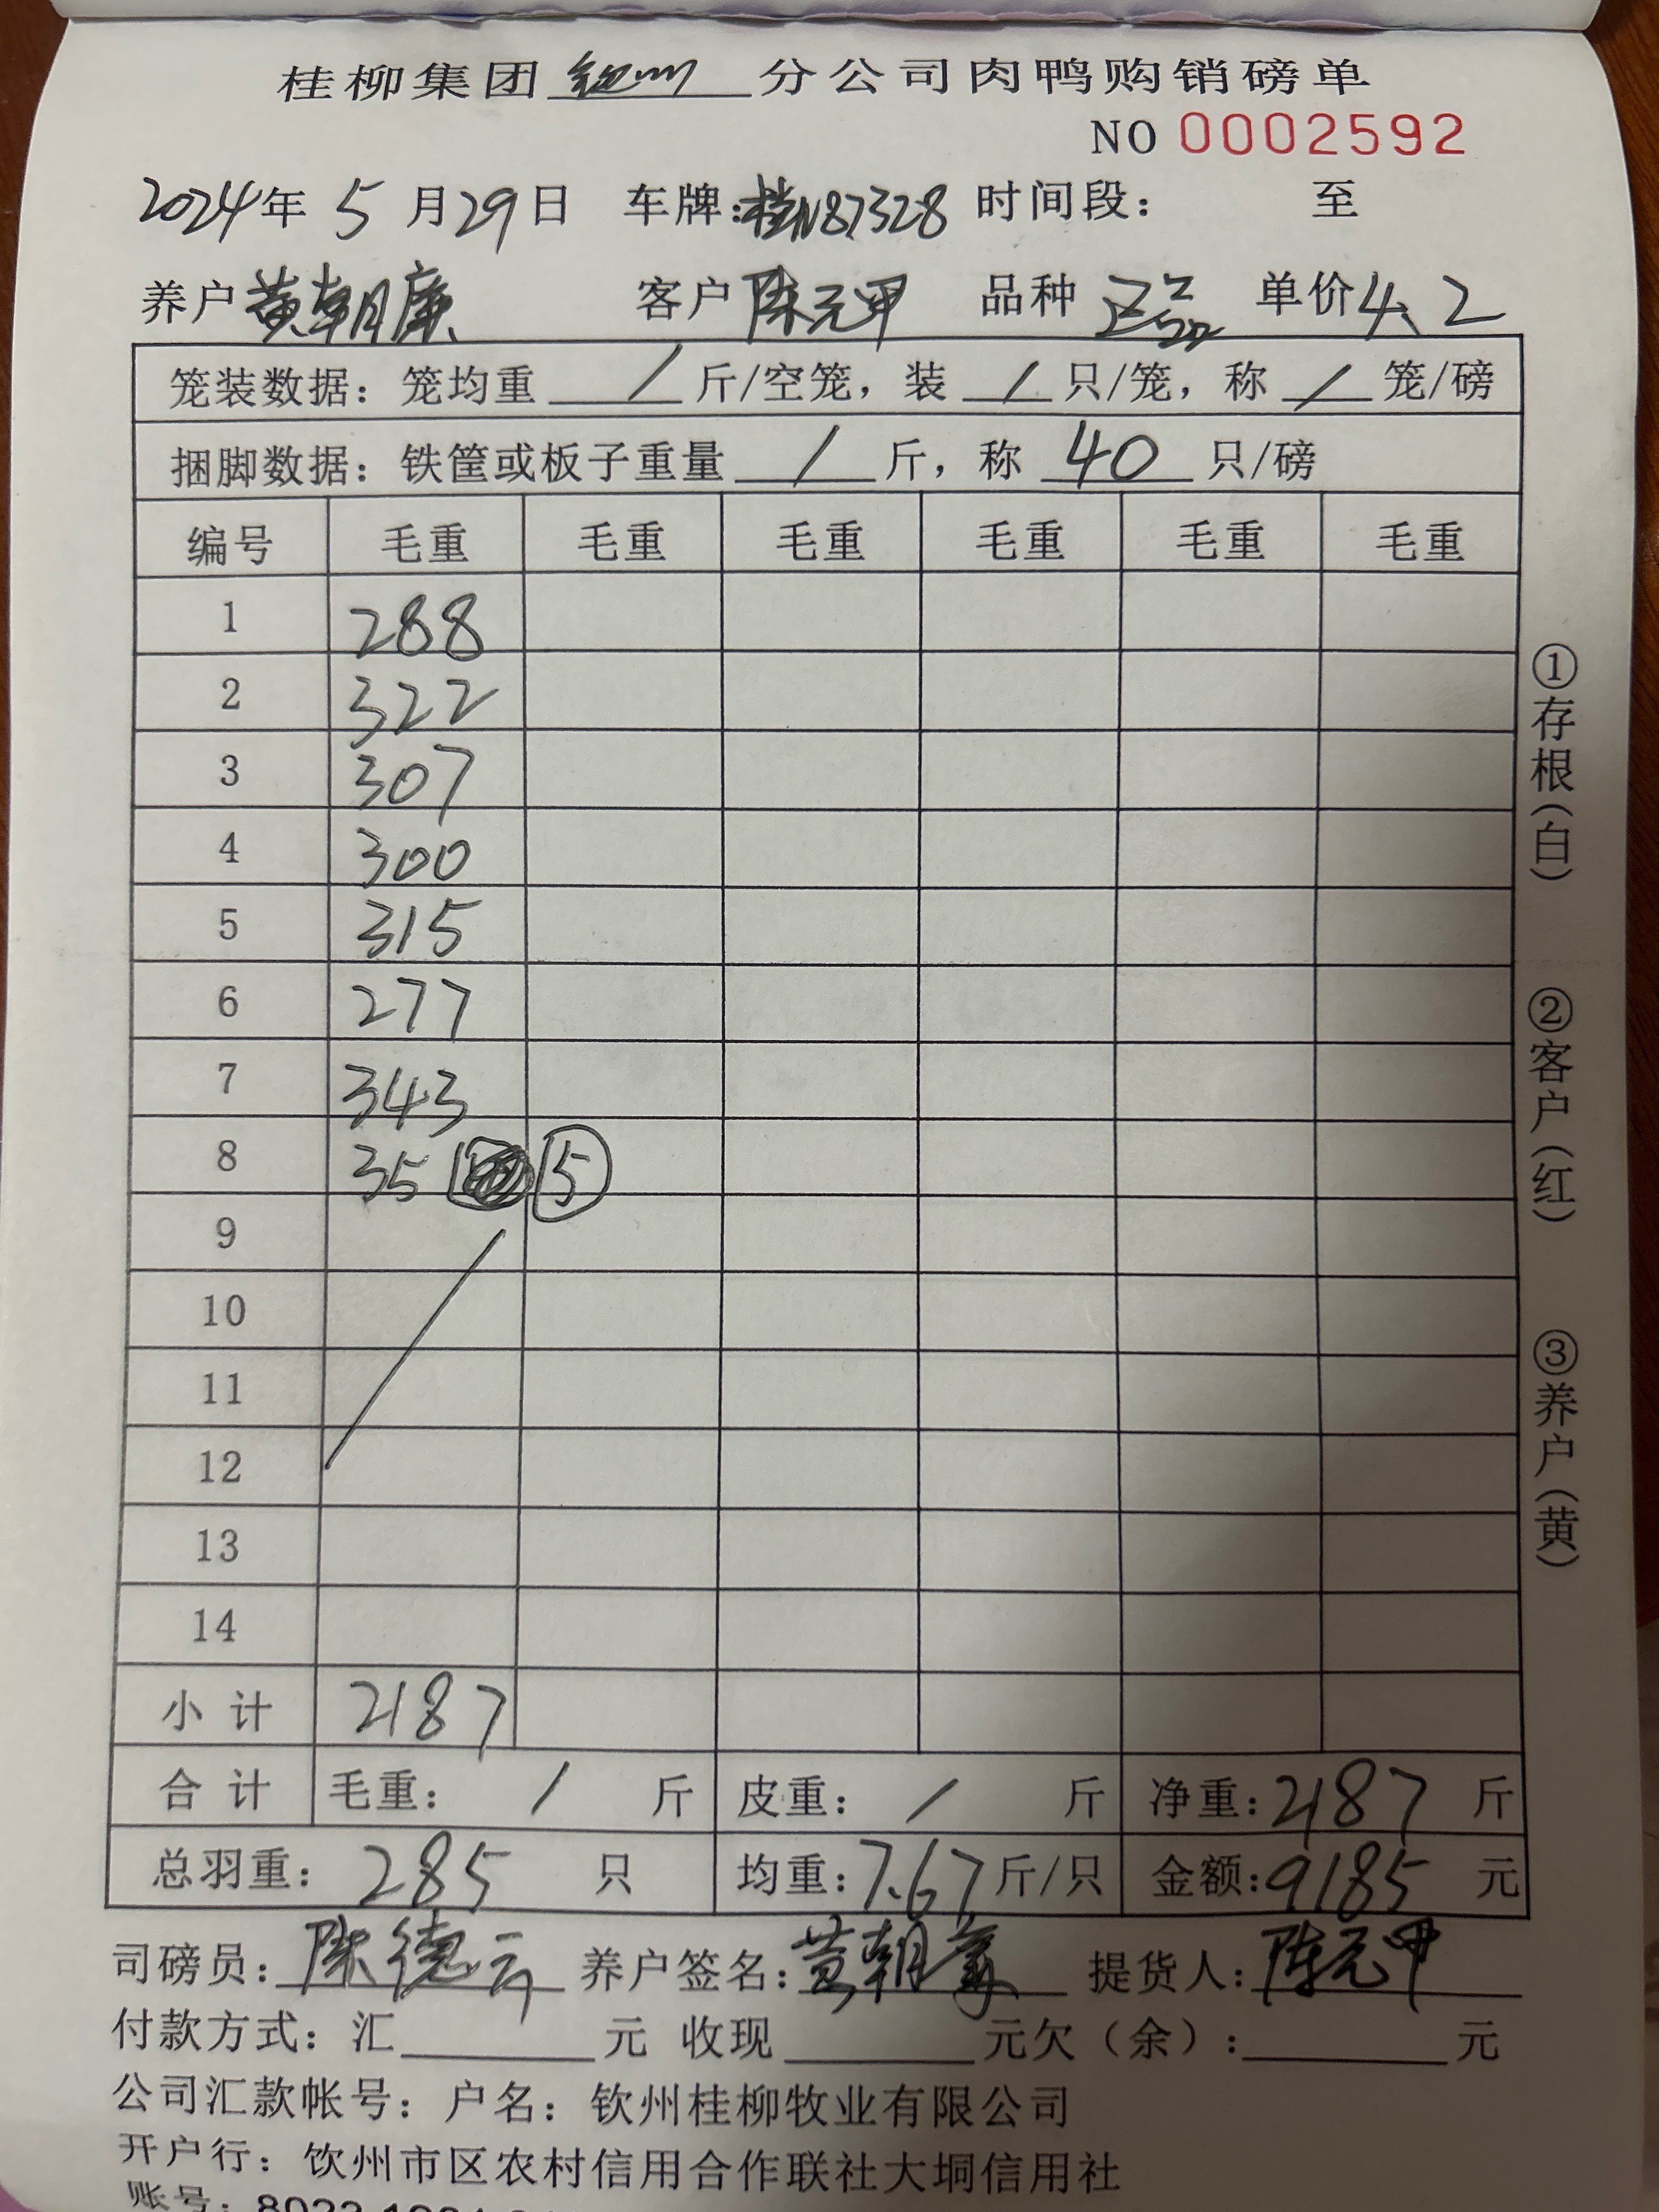 桂柳集团 钦州 分公司肉鸭购销磅单
NO 0002592
2024年 5 月29日 车牌:桂N87328 时间段: 至
养户 黄朝廉 客户 陈元甲 品种 正品 单价4.2
笼装数据:笼均重 / 斤/空笼,装 / 只/笼,称 / 笼/磅
捆脚数据:铁筐或板子重量 / 斤,称 40 只/磅
编号 毛重 毛重 毛重 毛重 毛重 毛重
1 288
2 322
3 307
4 300
5 315
6 277
7 343
8 35 ⑤
9
10
11
12
13
14
小计 2187
合计 毛重: / 斤 皮重: / 斤 净重:2187 斤
总羽重: 285 只 均重:7.67斤/只 金额:9185 元
司磅员:陈德云 养户签名:黄朝 提货人:陈元甲
付款方式:汇 元 收现 元欠(余): 元
公司汇款帐号:户名:钦州桂柳牧业有限公司
开户行:钦州市区农村信用合作联社大垌信用社
账号:
①存根(白)
②客户(红)
③养户(黄)